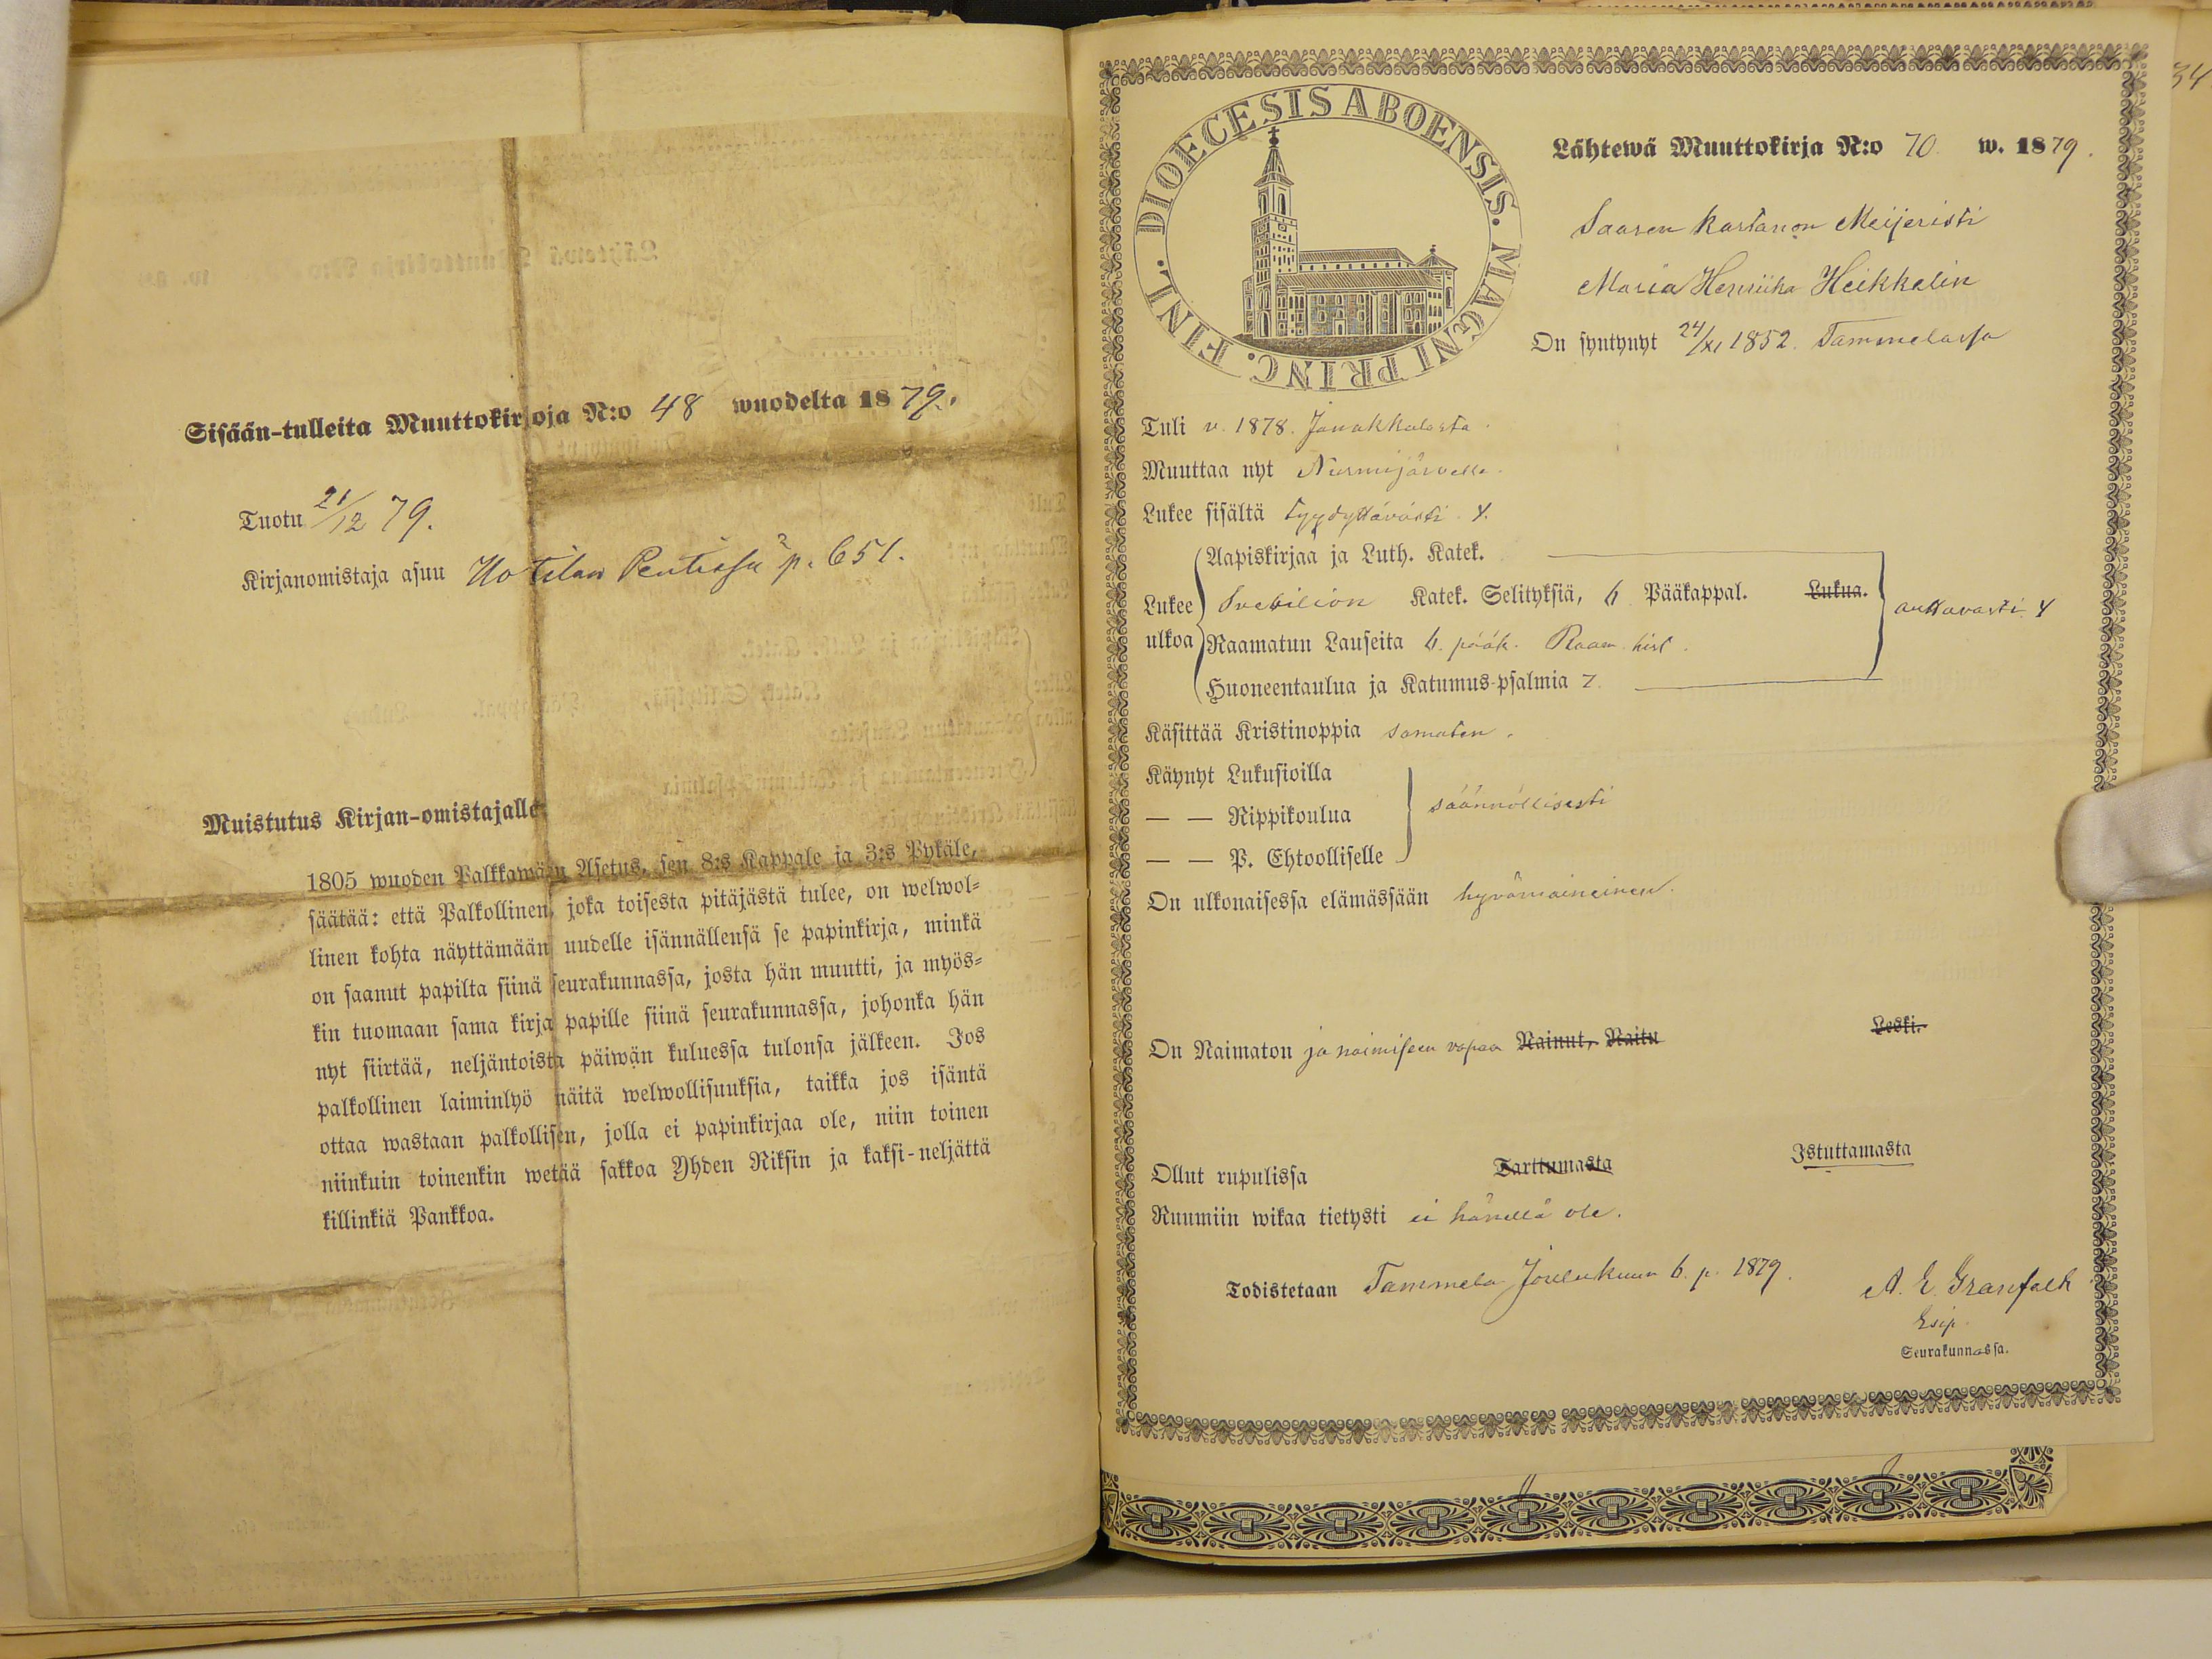 Sisään-tulleita Muuttokirjoja N:o 48 wuodelta 1879.
Tuotu 21/12 79.
Kirjanomistaja asuu Uotilan p. 651.
Muistutus Kirjan-omistajalle.
1805 wuoden Palkkawäen Asetus, sen 8:s Kappale ja 3:s Pykäle,
säätää: että Palkollinen, joka toisesta pitäjästä tulee, on welwol-
linen kohta näyttämään uudelle isännällensä se papinkirja, minkä
on saanut papilta siinä seurakunnassa, josta hän muutti, ja myös-
kin tuomaan sama kirja papille siinä seurakunnassa, johonka hän
nyt siirtää, neljäntoista päiwän kuluessa tulonsa jälkeen. Jos
palkollinen laiminlyö näitä welwollisuuksia, taikka jos isäntä
ottaa wastaan palkollisen, jolla ei papinkirjaa ole, niin toinen
niinkuin toinenkin wetää sakkoa Yhden Riksin ja kaksi-neljättä
killinkiä Pankkoa.
34
FINL. DIOECESIS ABOENSIS. MAGNI PRINC.
Lähtewä Muuttokirja N:o 70 w. 1879.
Saaren kartanon Meijeristi
Maria Henriika Heikkelin
On syntynyt 24/XI 1852. Tammelassa
Tuli v. 1878. Janakkalasta.
Muuttaa nyt Nurmijärvelle.
Lukee sisältä tyydyttävästi. Y.
Aapiskirjaa ja Luth. Katek.
Lukee ulkoa Svebilion Katek. Selityksiä, 6 Pääkappal. Lukua. auttavasti Y
Raamatun Lauseita 6. pääk. Raam. hist.
Huoneentaulua ja Katumus-psalmia 7
Käsittää Kristinoppia samaten.
Käynyt Lukusioilla
— — Rippikoulua säännöllisesti
— — P. Ehtoolliselle
On ulkonaisessa elämässään hyvämaineinen.
On Naimaton ja naimiseen vapaa Nainut, Naitu Leski.
Ollut rupulissa Tarttumasta Istuttamasta
Ruumiin wikaa tietysti ei hänellä ole.
Todistetaan Tammela Joulukuun 6. p. 1879.
A. E. Granfelt
Esip.
Seurakunnassa.